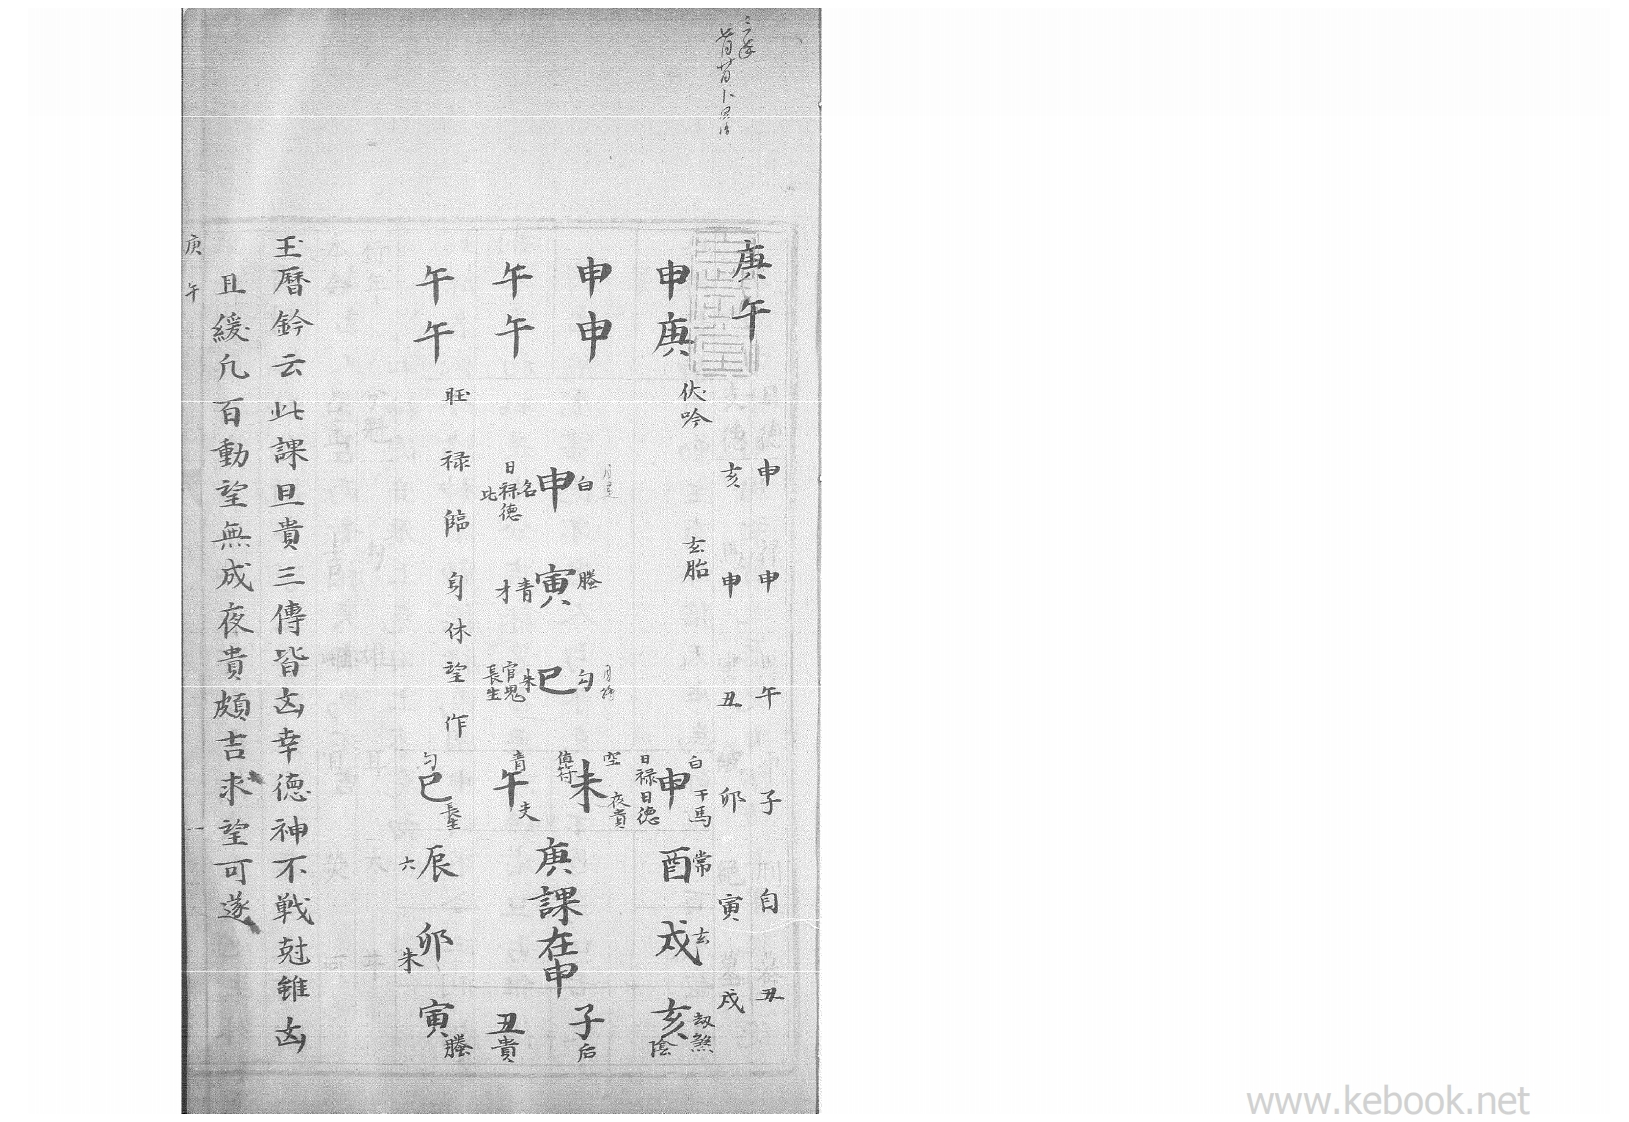 庚午
申 申 午 子 自 丑
亥 申 丑 卯 寅 戌
伏吟 玄胎
申庚
申申
午午
午午
白 申 名 日禄德 比
螣 寅 青 才
勾 巳 朱 官鬼 長生
旺 禄臨身休望作
白 申 干馬 日禄日德
常 酉
玄 戌
亥 劫煞 陰
空 未 夜貴
青 午
勾 巳 長生
六 辰
朱 卯
寅 螣
丑 貴
子 后
庚課在申
玉曆鈐云此課旦貴三傳皆凶幸德神不戰尅雖凶
且緩凡百動望無成夜貴頗吉求望可遂
庚午 一
www.kebook.net